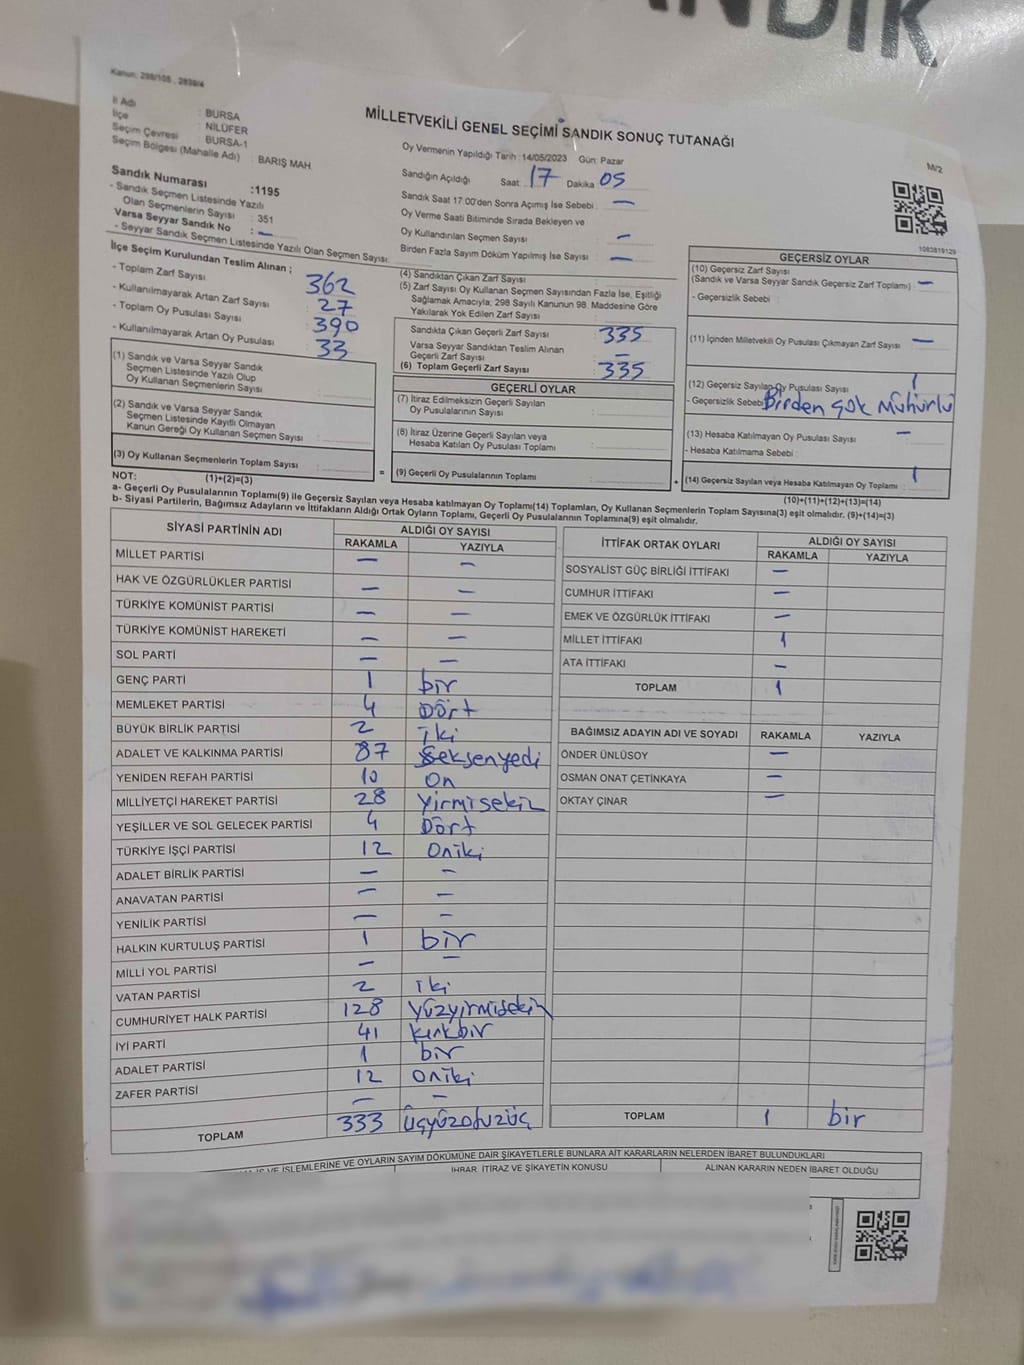 ANDIK
Kanun: 298/105 , 2839/4
İl Adı : BURSA
İlçe : NİLÜFER
Seçim Çevresi : BURSA-1
Seçim Bölgesi (Mahalle Adı) : BARIŞ MAH.
MİLLETVEKİLİ GENEL SEÇİMİ SANDIK SONUÇ TUTANAĞI
M/2
1083819129
Sandık Numarası :1195
- Sandık Seçmen Listesinde Yazılı
Olan Seçmenlerin Sayısı : 351
Varsa Seyyar Sandık No : —
- Seyyar Sandık Seçmen Listesinde Yazılı Olan Seçmen Sayısı:
Oy Vermenin Yapıldığı Tarih :14/05/2023 Gün: Pazar
Sandığın Açıldığı Saat 17 Dakika 05
Sandık Saat 17:00'den Sonra Açımış İse Sebebi : —
Oy Verme Saati Bitiminde Sırada Bekleyen ve
Oy Kullandırılan Seçmen Sayısı : —
Birden Fazla Sayım Döküm Yapılmış İse Sayısı : —
İlçe Seçim Kurulundan Teslim Alınan ;
- Toplam Zarf Sayısı : 362
- Kullanılmayarak Artan Zarf Sayısı : 27
- Toplam Oy Pusulası Sayısı : 390
- Kullanılmayarak Artan Oy Pusulası : 33
(1) Sandık ve Varsa Seyyar Sandık
Seçmen Listesinde Yazılı Olup
Oy Kullanan Seçmenlerin Sayısı :
(2) Sandık ve Varsa Seyyar Sandık
Seçmen Listesinde Kayıtlı Olmayan
Kanun Gereği Oy Kullanan Seçmen Sayısı :
(3) Oy Kullanan Seçmenlerin Toplam Sayısı :
(1)+(2)=(3)
(4) Sandıktan Çıkan Zarf Sayısı :
(5) Zarf Sayısı Oy Kullanan Seçmen Sayısından Fazla İse, Eşitliği
Sağlamak Amacıyla; 298 Sayılı Kanunun 98. Maddesine Göre
Yakılarak Yok Edilen Zarf Sayısı :
Sandıkta Çıkan Geçerli Zarf Sayısı : 335
Varsa Seyyar Sandıktan Teslim Alınan
Geçerli Zarf Sayısı : —
(6) Toplam Geçerli Zarf Sayısı : 335
GEÇERLİ OYLAR
(7) İtiraz Edilmeksizin Geçerli Sayılan
Oy Pusulalarının Sayısı :
(8) İtiraz Üzerine Geçerli Sayılan veya
Hesaba Katılan Oy Pusulası Toplamı :
= (9) Geçerli Oy Pusulalarının Toplamı : +
GEÇERSİZ OYLAR
(10) Geçersiz Zarf Sayısı
(Sandık ve Varsa Seyyar Sandık Geçersiz Zarf Toplamı) : —
- Geçersizlik Sebebi :
(11) İçinden Milletvekili Oy Pusulası Çıkmayan Zarf Sayısı : —
(12) Geçersiz Sayılan Oy Pusulası Sayısı : 1
- Geçersizlik Sebebi : Birden çok Mühürlü
(13) Hesaba Katılmayan Oy Pusulası Sayısı : —
- Hesaba Katılmama Sebebi :
(14) Geçersiz Sayılan veya Hesaba Katılmayan Oy Toplamı : 1
(10)+(11)+(12)+(13)=(14)
NOT:
a- Geçerli Oy Pusulalarının Toplamı(9) ile Geçersiz Sayılan veya Hesaba katılmayan Oy Toplamı(14) Toplamları, Oy Kullanan Seçmenlerin Toplam Sayısına(3) eşit olmalıdır. (9)+(14)=(3)
b- Siyasi Partilerin, Bağımsız Adayların ve İttifakların Aldığı Ortak Oyların Toplamı, Geçerli Oy Pusulalarının Toplamına(9) eşit olmalıdır.
SİYASİ PARTİNİN ADI ALDIĞI OY SAYISI
RAKAMLA YAZIYLA
MİLLET PARTİSİ — —
HAK VE ÖZGÜRLÜKLER PARTİSİ — —
TÜRKİYE KOMÜNİST PARTİSİ — —
TÜRKİYE KOMÜNİST HAREKETİ — —
SOL PARTİ — —
GENÇ PARTİ 1 bir
MEMLEKET PARTİSİ 4 Dört
BÜYÜK BİRLİK PARTİSİ 2 iki
ADALET VE KALKINMA PARTİSİ 87 Seksenyedi
YENİDEN REFAH PARTİSİ 10 On
MİLLİYETÇİ HAREKET PARTİSİ 28 Yirmisekiz
YEŞİLLER VE SOL GELECEK PARTİSİ 4 Dört
TÜRKİYE İŞÇİ PARTİSİ 12 Oniki
ADALET BİRLİK PARTİSİ — —
ANAVATAN PARTİSİ — —
YENİLİK PARTİSİ — —
HALKIN KURTULUŞ PARTİSİ 1 bir
MİLLİ YOL PARTİSİ — —
VATAN PARTİSİ 2 iki
CUMHURİYET HALK PARTİSİ 128 Yüzyirmisekiz
İYİ PARTİ 41 kırkbir
ADALET PARTİSİ 1 bir
ZAFER PARTİSİ 12 Oniki
— —
TOPLAM 333 Üçyüzotuzüç
İTTİFAK ORTAK OYLARI ALDIĞI OY SAYISI
RAKAMLA YAZIYLA
SOSYALİST GÜÇ BİRLİĞİ İTTİFAKI —
CUMHUR İTTİFAKI —
EMEK VE ÖZGÜRLÜK İTTİFAKI —
MİLLET İTTİFAKI 1
ATA İTTİFAKI —
TOPLAM 1
BAĞIMSIZ ADAYIN ADI VE SOYADI RAKAMLA YAZIYLA
ÖNDER ÜNLÜSOY —
OSMAN ONAT ÇETİNKAYA —
OKTAY ÇINAR —
TOPLAM 1 bir
İŞ VE İŞLEMLERİNE VE OYLARIN SAYIM DÖKÜMÜNE DAİR ŞİKAYETLERLE BUNLARA AİT KARARLARIN NELERDEN İBARET BULUNDUKLARI
İHBAR, İTİRAZ VE ŞİKAYETİN KONUSU ALINAN KARARIN NEDEN İBARET OLDUĞU